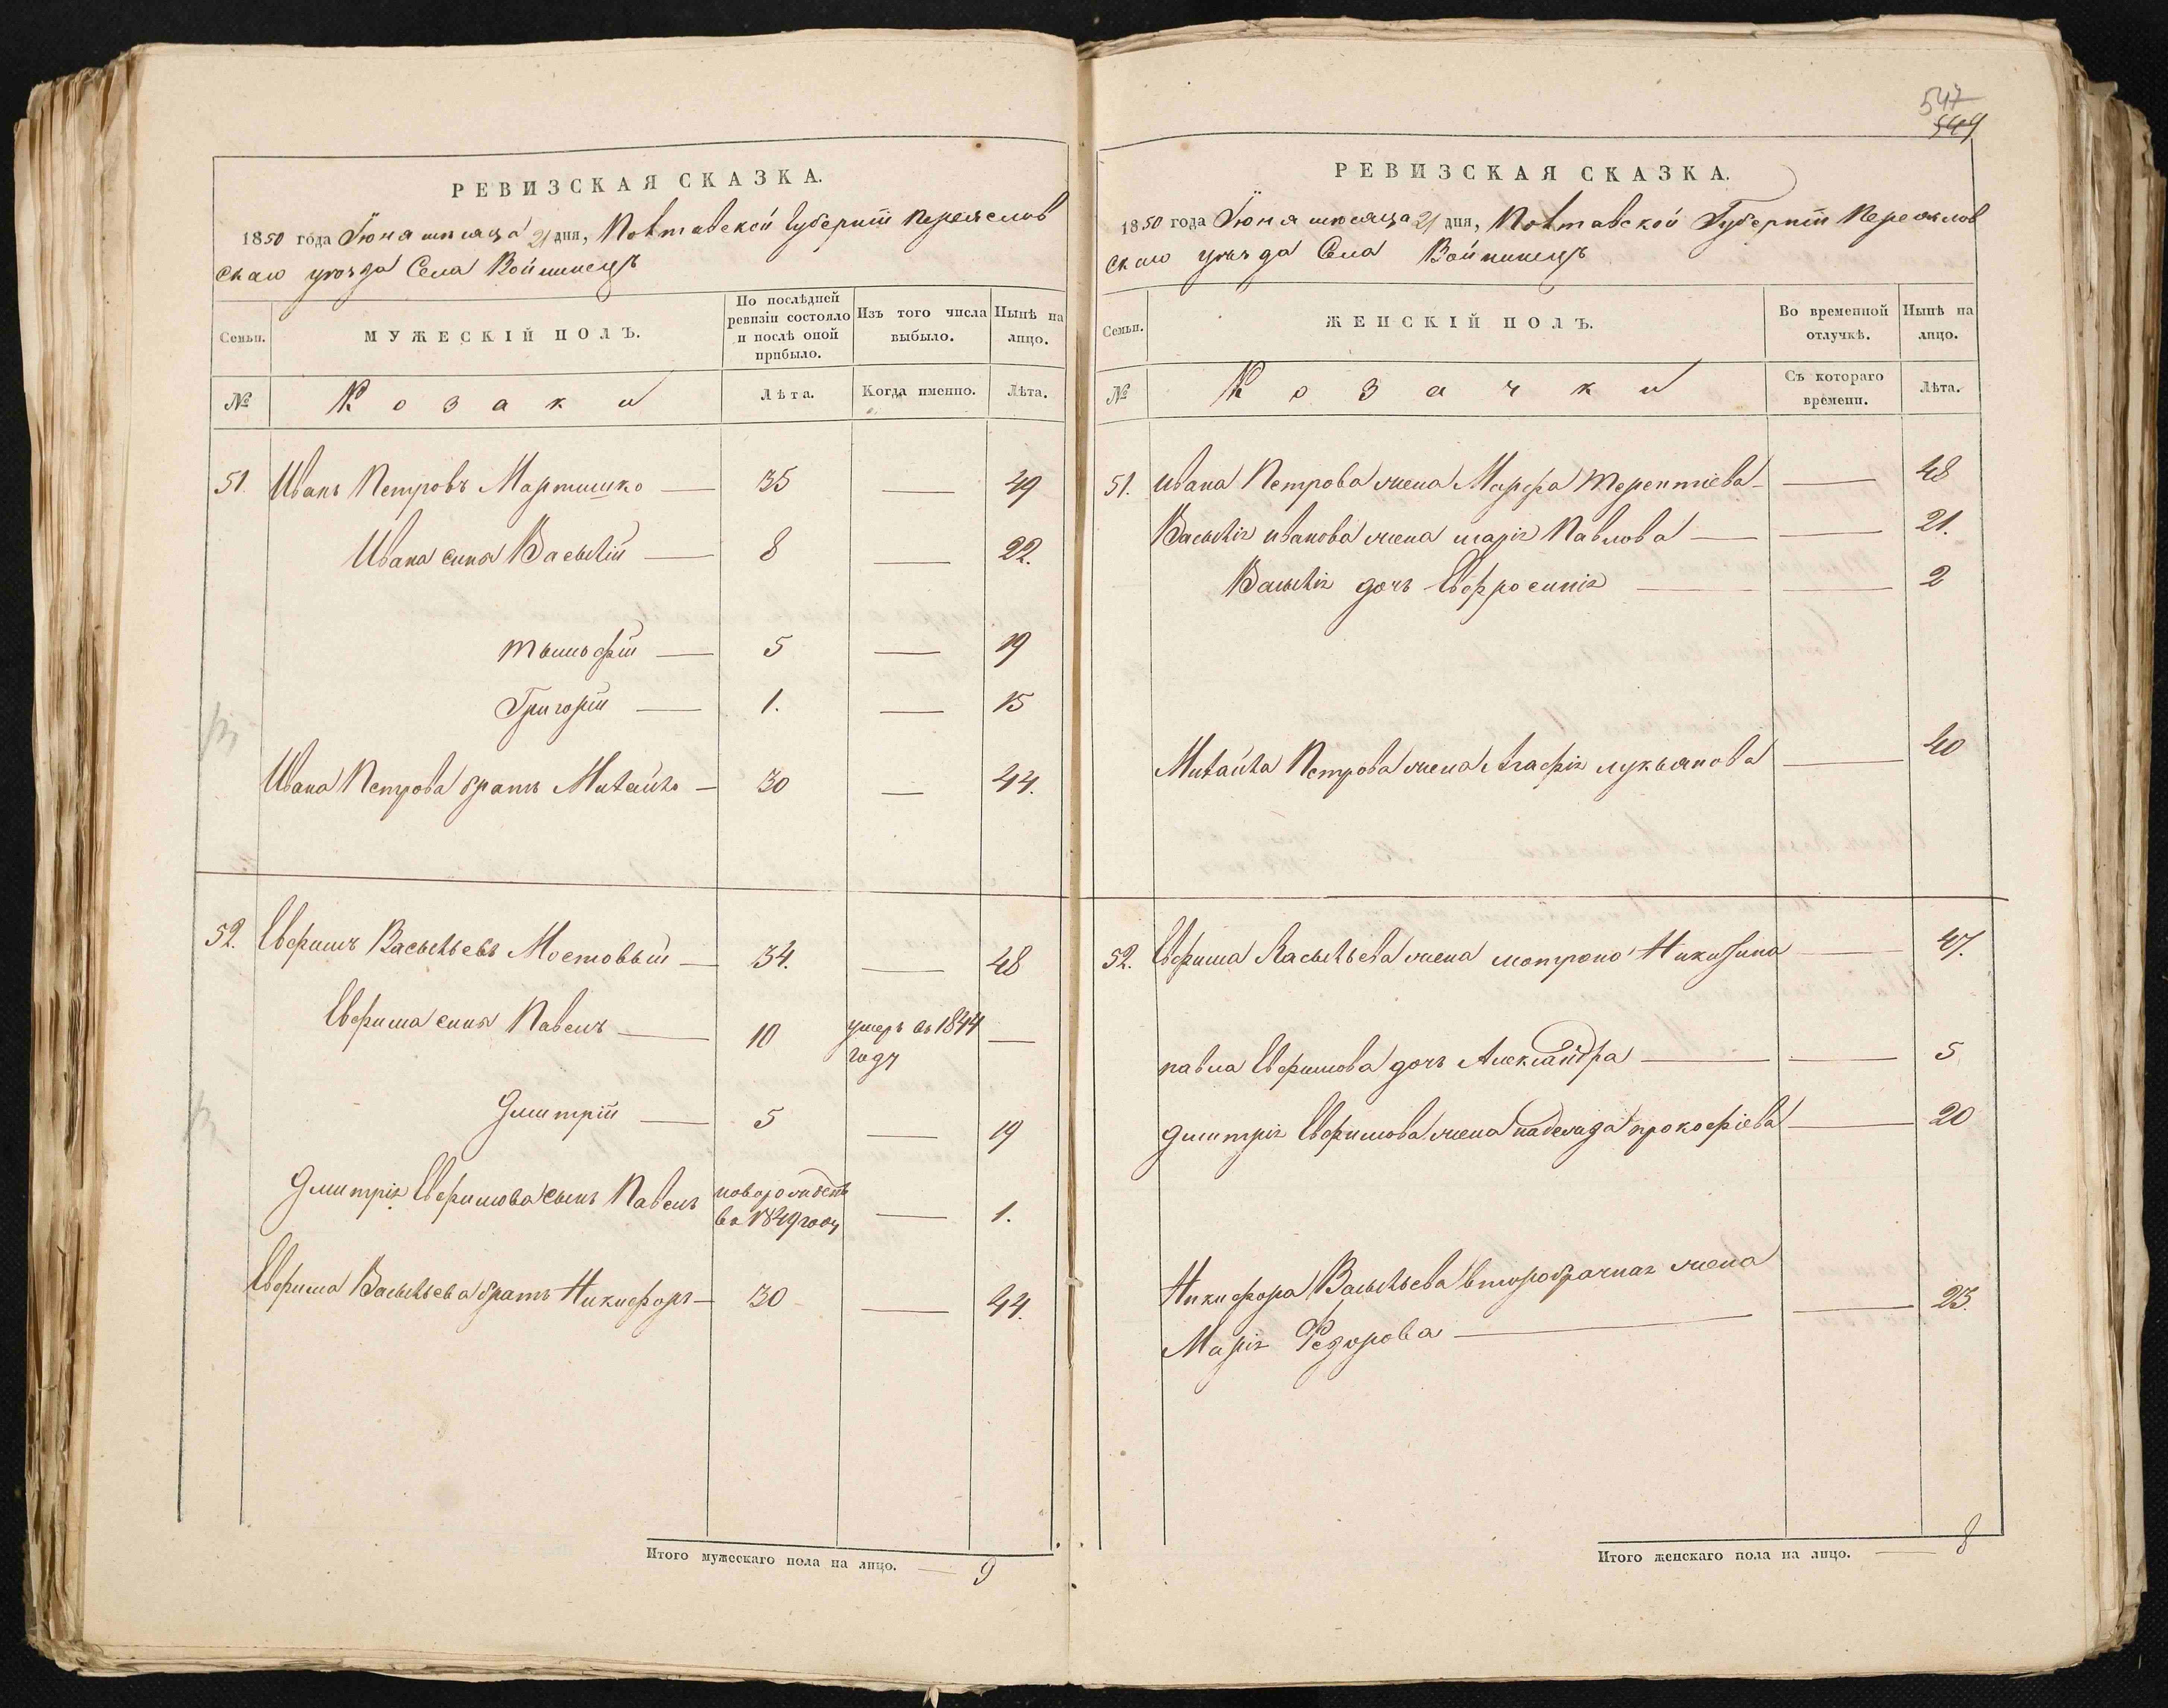 РЕВИЗСКАЯ СКАЗКА.
1850 года Іюня мѣсяца 21 дня, Полтавской Губерніи Переяслов
скаго уѣзда Села Войтовецъ
Семьи.
МУЖЕСКІЙ ПОЛЪ.
По послѣдней
ревизіи состояло
и послѣ оной
прибыло.
Изъ того числа
выбыло.
Нынѣ на
лицо.
№
Козаки
Лѣта.
Когда именно.
Лѣта.
51. Иванъ Петровъ Мартишко — 35 — 49
Ивана сыня Васылій — 8 — 22.
Тымофій — 5 — 19
Григорій — 1. — 15
Ивана Петрова братъ Михайло — 30 — 44.
52. Ефимъ Васыльевъ Мостовый — 34. — 48
Ефима сыня Павелъ — 10 умеръ въ 1844 —
году
Дмитрій — 5 — 19
Дмитрія Ефимова сынъ Павелъ новорожденъ — 1.
въ 1849 году
Ефима Васыльева братъ Никифоръ — 30 — 44.
Итого мужескаго пола на лицо. — 9
547
549
РЕВИЗСКАЯ СКАЗКА.
1850 года Іюня мѣсяца 21 дня, Полтавской Губерніи Переяслов
скаго уѣзда Села
Семьи.
ЖЕНСКІЙ ПОЛЪ.
Во временной
отлучкѣ.
Нынѣ на
лицо.
№
Козачки
Съ котораго
времени.
Лѣта.
51. Ивана Петрова жена Марфа Терентіева — — 48
Васылія Иванова жена Марія Павлова — — 21.
Васылія дочь Евфросинія — — 2
Михайла Петрова жена Агафія Лукьянова — 40
52. Ефима Васыльева жена Мотрона Никитина — 47.
Павла Ефимова дочь Александра — — 5
Дмитрія Ефимова жена Надежда Прокофіева — 20
Никифора Васыльева второбрачная жена
Марія Федорова — — 23.
Итого женскаго пола на лицо. — 8